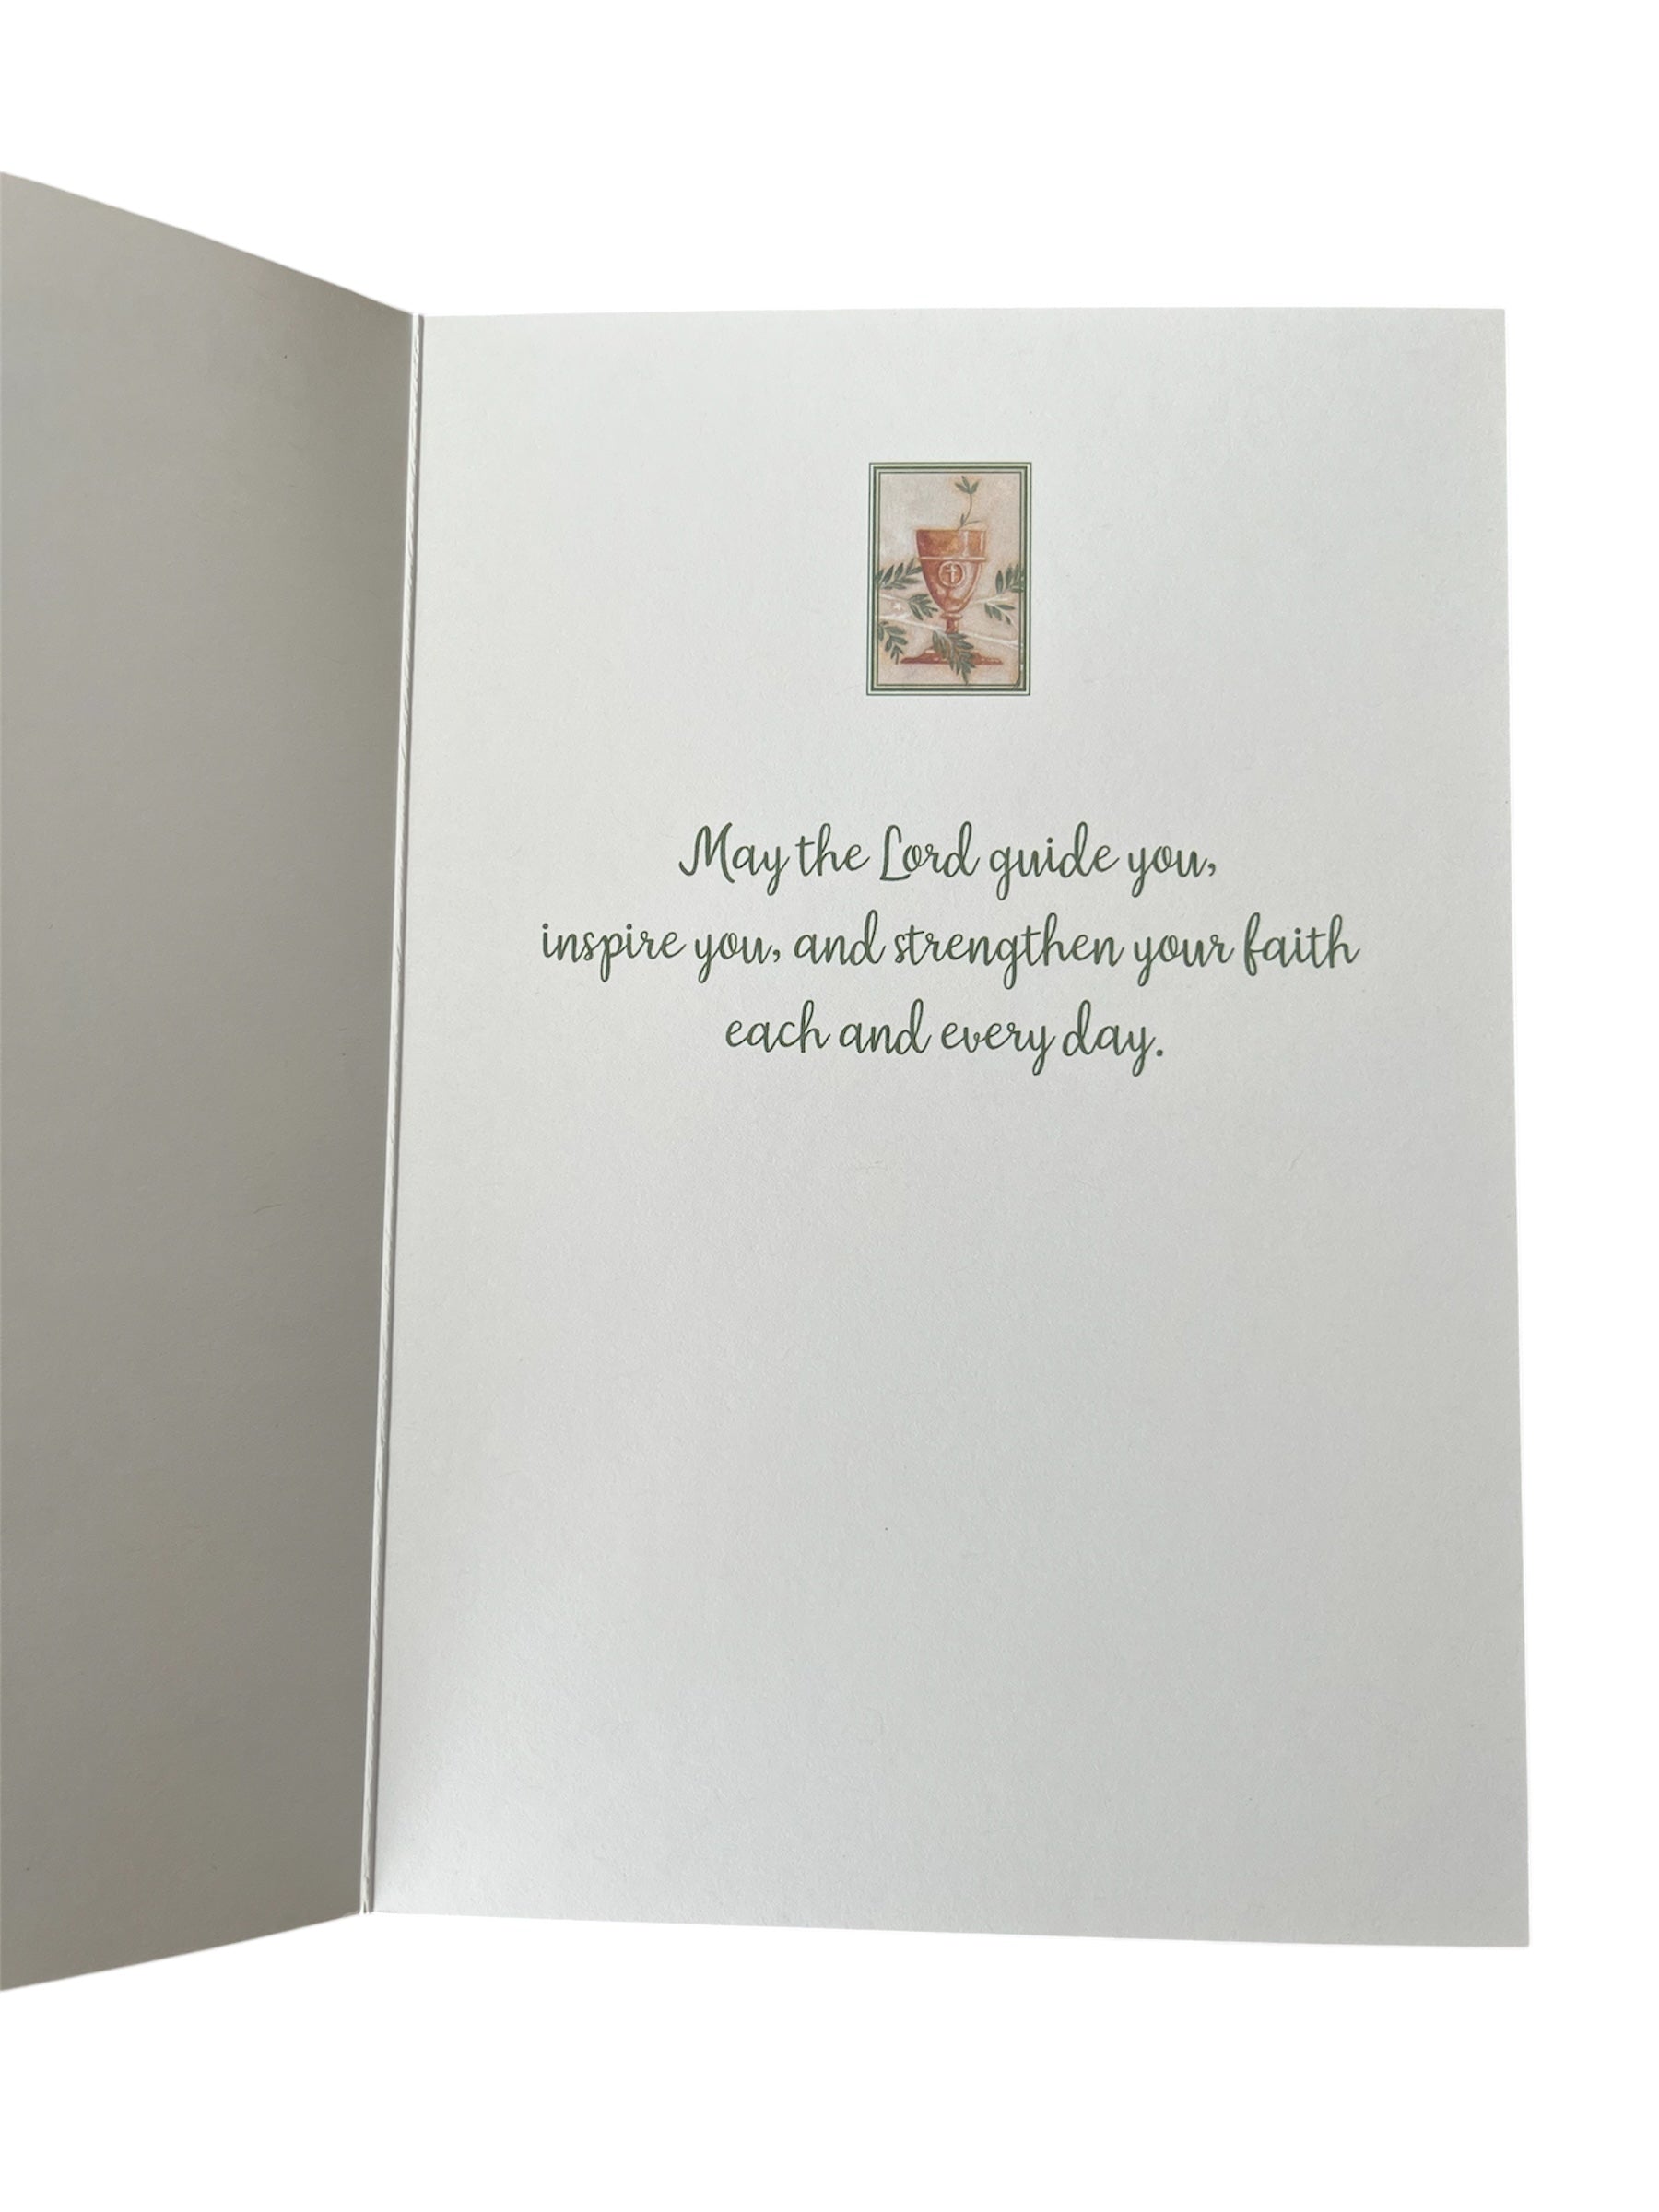 May the Lord guide you,
inspire you, and strengthen your faith
each and every day.